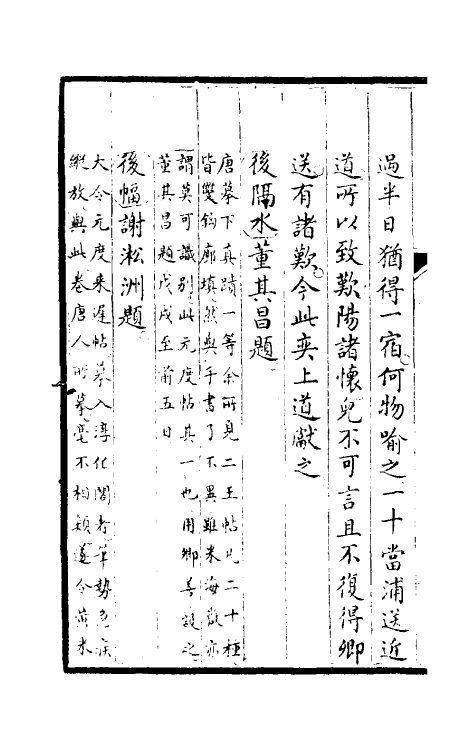 過半日猶得一宿何物喻之一十當浦送近
道所以致歎陽諸懷兒不可言且不復得卿
送有諸歎今此奕上道獻之
後隔水董其昌題
唐摹下真蹟一等余所見二王帖凡二十種
皆雙鈎廓填然與手書了不異雖米海嶽亦
謂莫可識別此元度帖其一也用卿善護之
董其昌題戊戌至前五日
後幅謝淞洲題
大令元度來遲帖摹入淳化閣者筆勢
縱放與此卷唐人所摹毫不相類遂令黃米